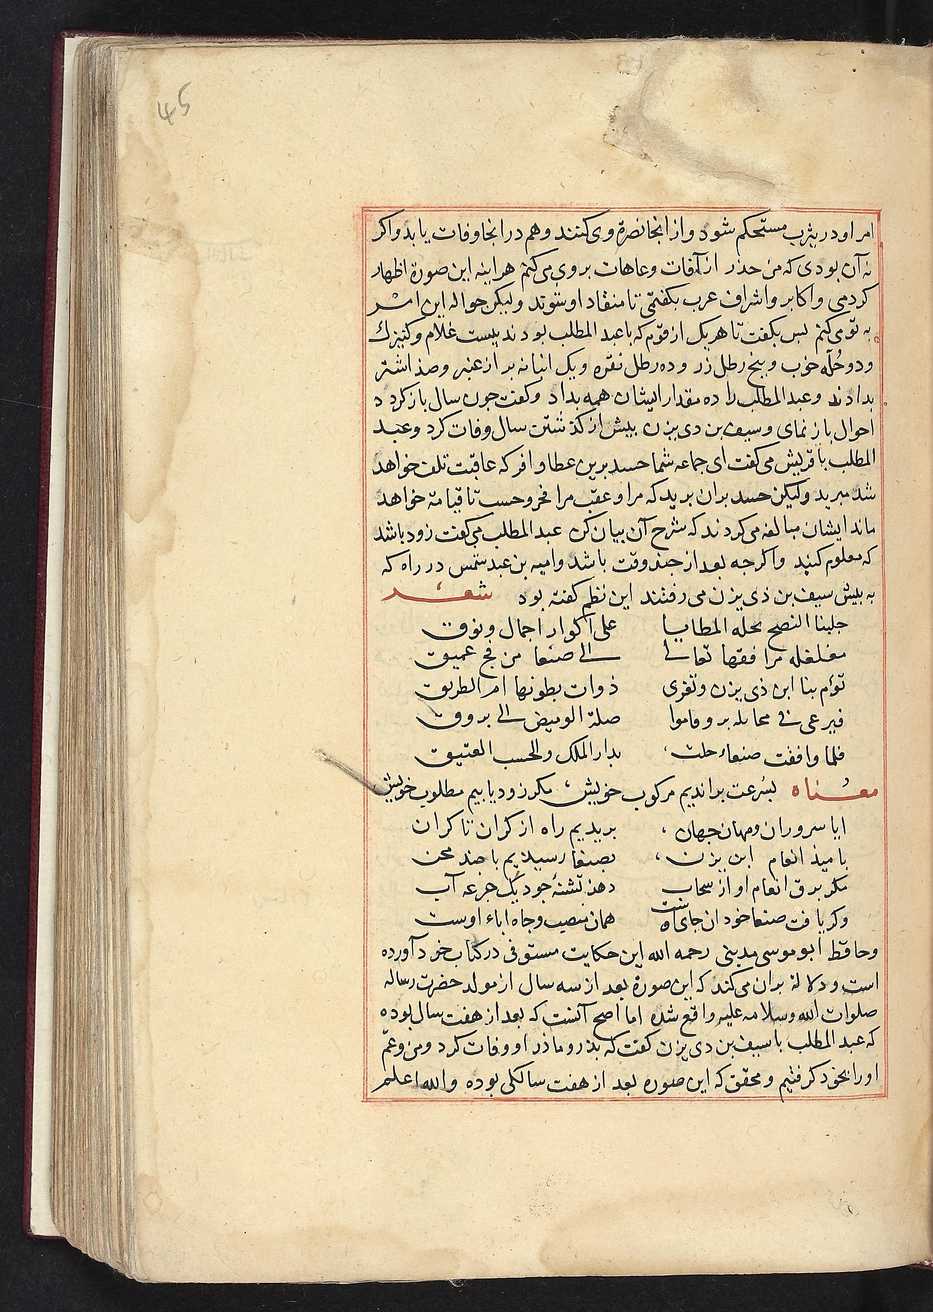 45
امر او در یثرب مستحکم شود و از انجا نصرة وی کنند و هم در انجا وفات یابد و اکر
نه آن بودی که من حذر از آفات و عاهات بر وی می کنم هر اینه این صورة اظهار
کردمی و اکابر و اشراف عرب بکفتمی تا منقاد او شوند ولیکن حواله این امر
به تو می کنم بس بکفت تا هر یک از قوم که با عبد المطلب بودند بیست غلام و کنیزک
و دو حُلّه خوب و بنج رطل زر و ده رطل نقره و یک انبانه بر از عنبر و صد اشتر
بدادند و عبد المطلب را ده مقدار ایشان همه بداد و کفت جون سال باز کردد
احوال باز نمای و سیف بن ذی یزن بیش از کذشتن سال وفات کرد و عبد
المطلب با قریش می کفت ای جماعه شما حسد برین عطا وافر که عاقبت تلف خواهد
شد مبرید ولیکن حسد بران برید که مرا و عقب مرا فخر و حسب تا قیامة خواهد
ماند ایشان مبالغه می کردند که شرح آن بیان کن عبد المطلب می کفت زود باشد
که معلوم کنید و اکر جه بعد از جند وقت باشد و امیه بن عبد شمس در راه که
به بیش سیف بن ذی یزن می رفتند این نظم کفته بود شعر
جلبنا النصح تحله المطایا علی اکوار اجمال و نوق
مغلغله مرافقها تعالی الی صنعا من فج عمیق
توم بنا ابن ذی یزن و تفری ذوات بطونها ام الطریق
فیرعی فی مخائله بروقاموا صلة الومیض الی بروق
فلما وافقت صنعاء حلت بدار الملک والحسب العتیق
معناه بسرعت براندیم مرکوب خویش مکر زود یابیم مطلوب خویش
ایا سروران و مهان جهان بریدیم راه از کران تا کران
بامید انعام ابن یزن بصنعا رسیدیم با صد محن
مکر بدق انعام او از سحاب دهد تشنهٔ جود یک جرعه آب
وکر یافت صنعا خود ان جای است همان منصب و جاه اباء اوست
و حافظ ابو موسی مدینی رحمه الله این حکایت مستوفی در کتاب خود آورده
است و دلالة بران می کند که این صورة بعد از سه سال از مولد حضرت رساله
صلوات الله وسلامه علیه واقع شده اما اصح آنست که بعد از هفت سال بوده
که عبد المطلب با سیف بن ذی یزن کفت که بدر و مادر او وفات کرد و من و عم
او را بخود کرفتیم و محقق که این صوره بعد از هفت سالکی بوده والله اعلم